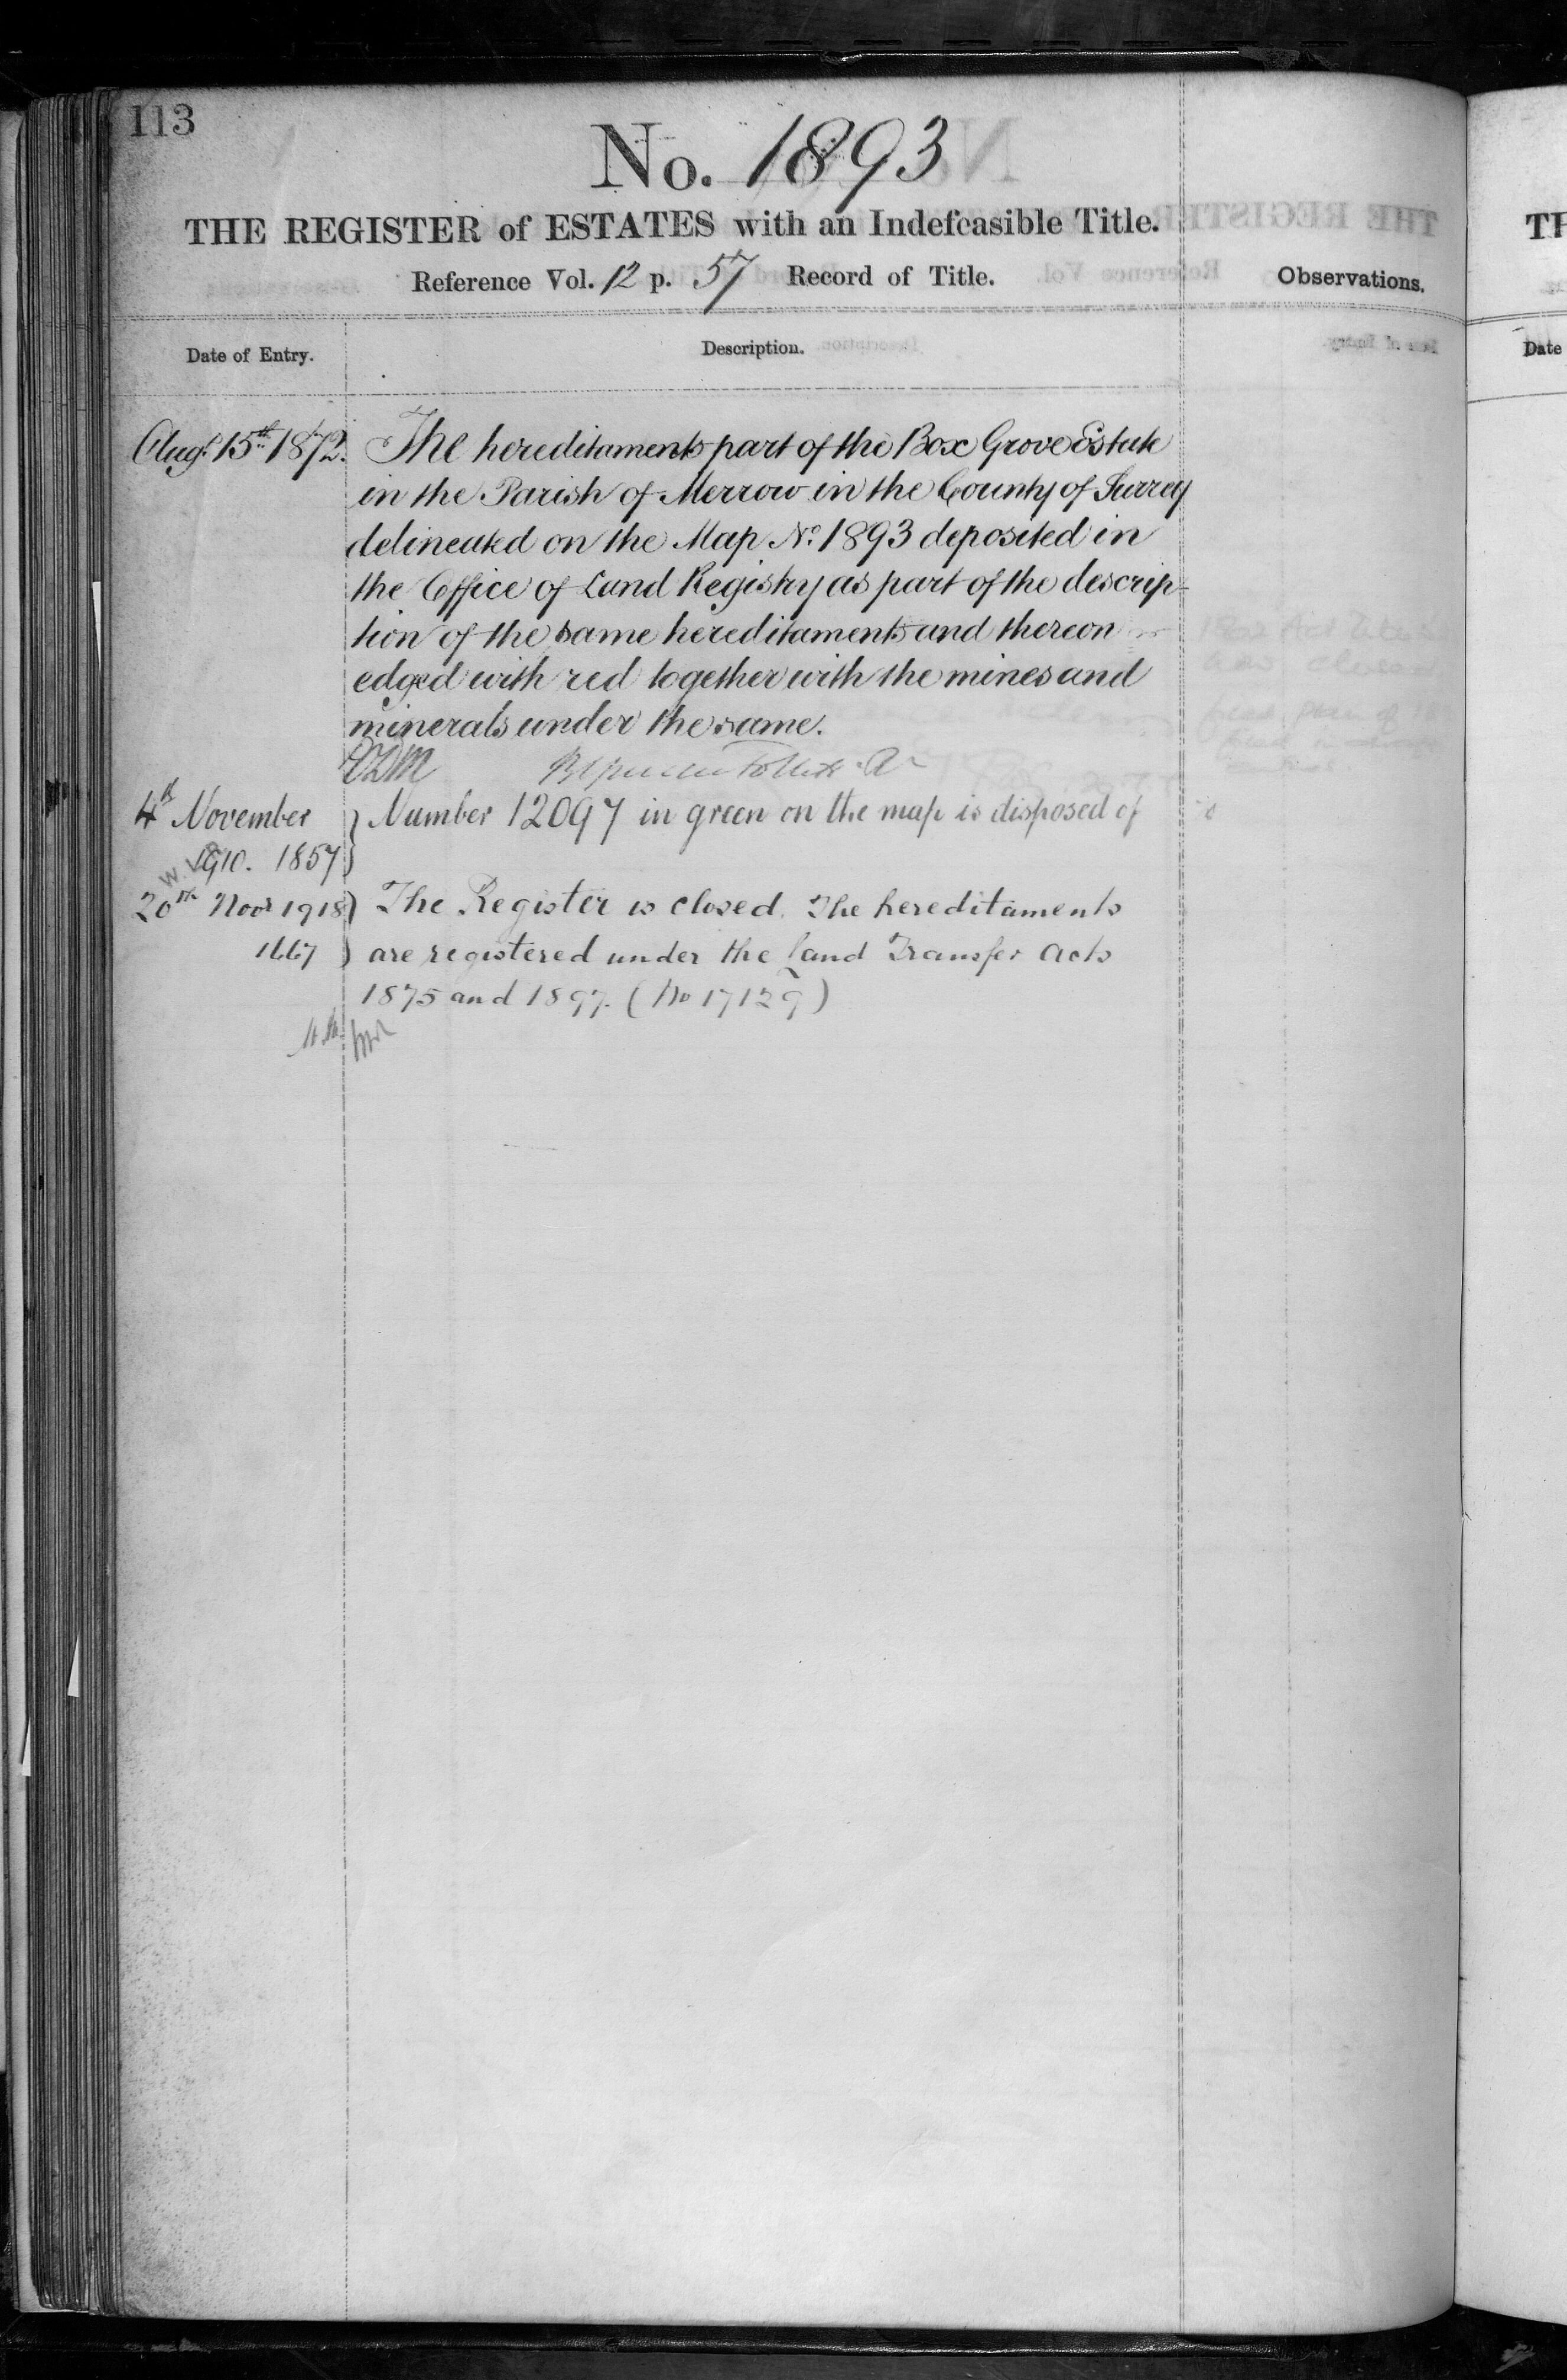 113
No. 1893
THE REGISTER of ESTATES with an Indefeasible Title.
Reference Vol. 12 p. 57 Record of Title.
Observations.
Date of Entry.
Description.
Augt. 15th 1872. The hereditaments part of the Box Grove Estate
in the Parish of Merrow in the County of Surrey
delineated on the Map No. 1893 deposited in
the Office of Land Registry as part of the descrip-
tion of the same hereditaments and thereon
edged with red together with the mines and
minerals under the same.
4th November } Number 12097 in green on the map is disposed of
1910. 1857 }
20th Novr 1918 } The Register is closed. The hereditaments
1667 } are registered under the Land Transfer Acts
1875 and 1897. (No 17129)
TH
Date